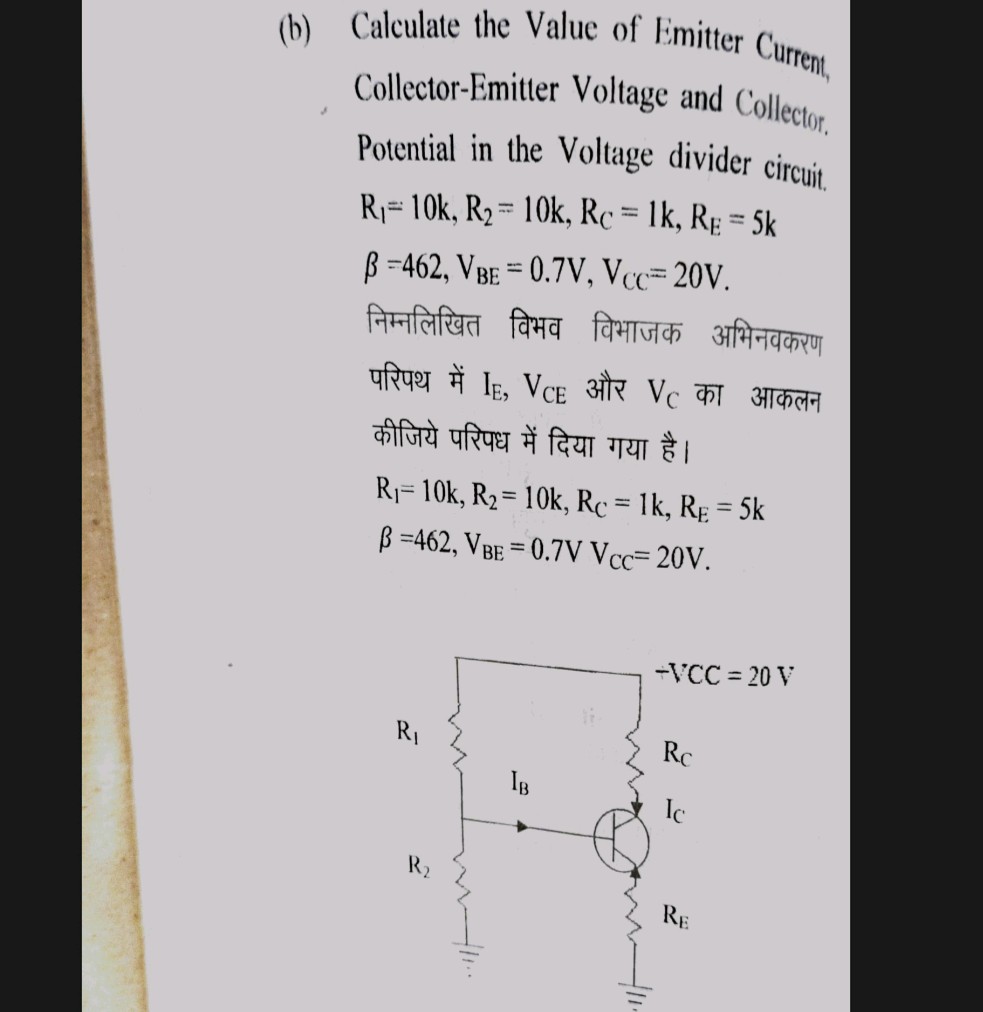 (b) Calculate the Value of Emitter Current,
Collector-Emitter Voltage and Collector.
Potential in the Voltage divider circuit.
R₁= 10k, R₂ = 10k, RC = 1k, RE = 5k
β =462, VBE = 0.7V, VCC= 20V.
निम्नलिखित विभव विभाजक अभिनवकरण
परिपथ में IE, VCE और VC का आकलन
कीजिये परिपध में दिया गया है।
R₁= 10k, R₂ = 10k, RC = 1k, RE = 5k
β =462, VBE = 0.7V VCC= 20V.
+VCC = 20 V
R₁
RC
IB
IC
R₂
RE